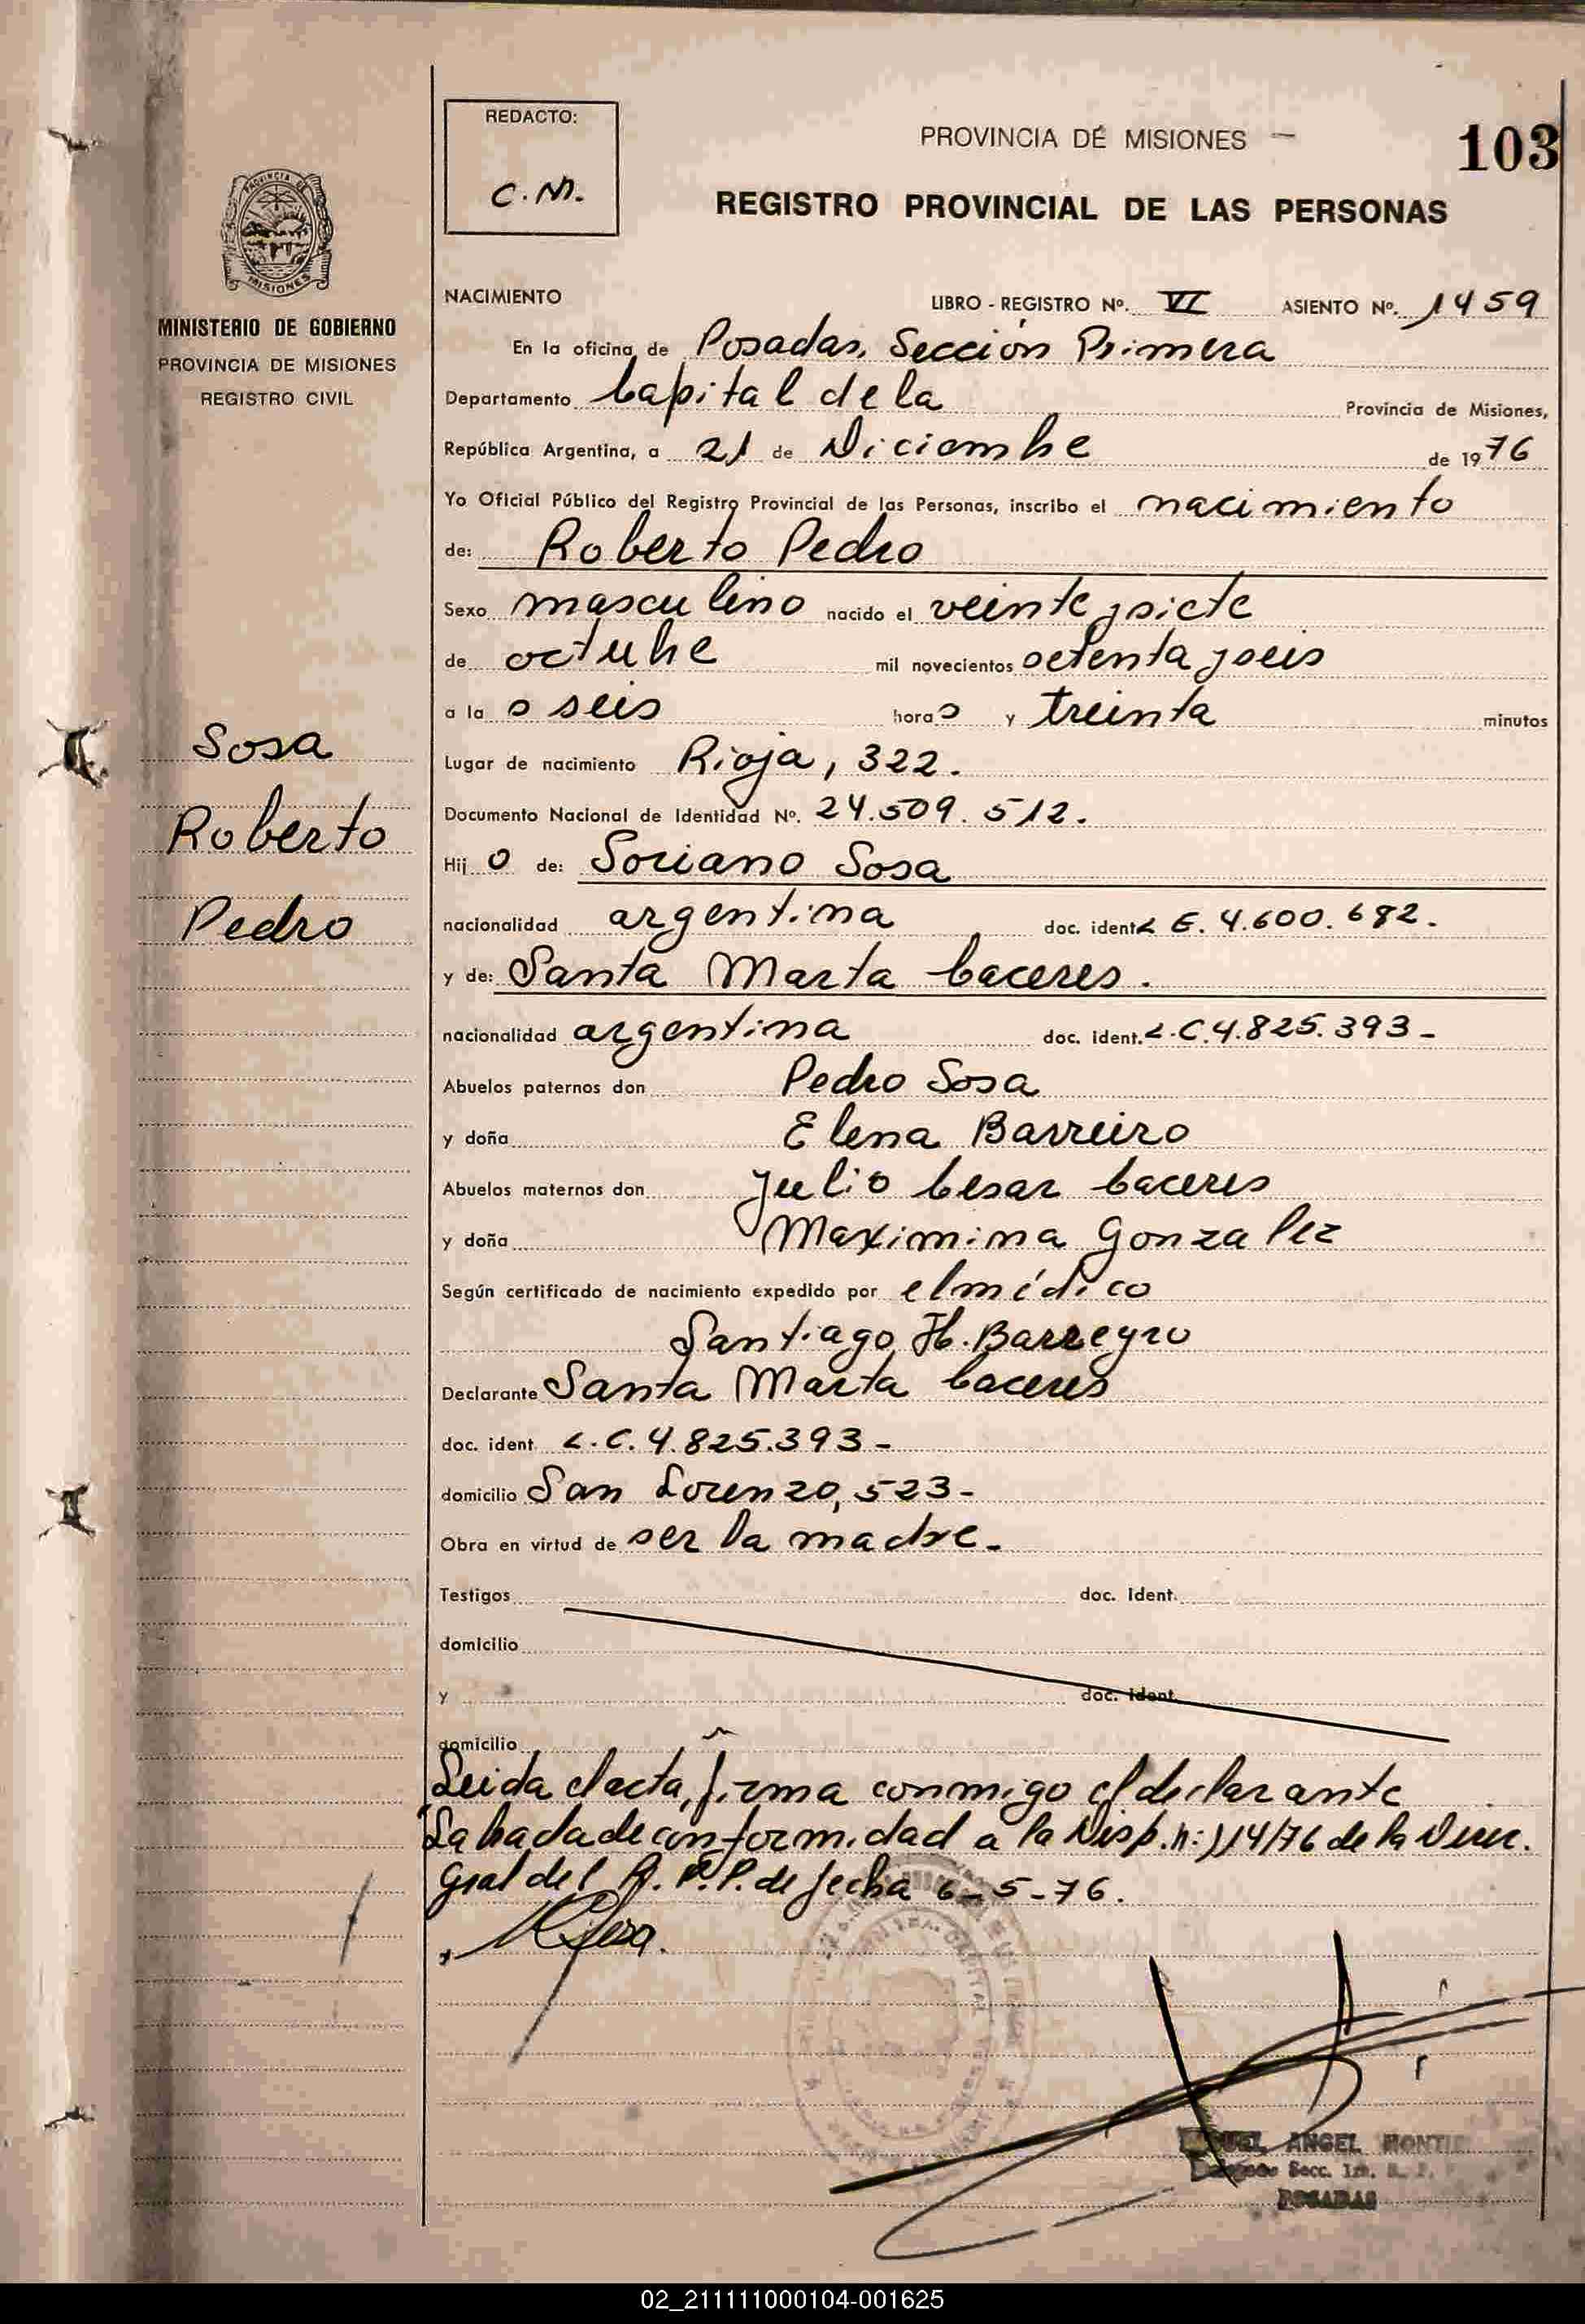 REDACTO:
C. M.
PROVINCIA DE MISIONES
103
REGISTRO PROVINCIAL DE LAS PERSONAS
PROVINCIA DE
MISIONES
MINISTERIO DE GOBIERNO
PROVINCIA DE MISIONES
REGISTRO CIVIL
Sosa
Roberto
Pedro
NACIMIENTO LIBRO - REGISTRO Nº. VI ASIENTO Nº. 1459
En la oficina de Posadas, Sección Primera
Departamento Capital de la Provincia de Misiones,
República Argentina, a 21 de Diciembre de 1976
Yo Oficial Público del Registro Provincial de las Personas, inscribo el nacimiento
de: Roberto Pedro
Sexo masculino nacido el veinte y siete
de octubre mil novecientos setenta y seis
a la s seis horas y treinta minutos
Lugar de nacimiento Rioja, 322.
Documento Nacional de Identidad Nº. 24.509.512.
Hij o de: Soriano Sosa
nacionalidad argentina doc. ident. L E. 4.600.682.
y de: Santa Marta Caceres.
nacionalidad argentina doc. ident. L.C. 4.825.393-
Abuelos paternos don Pedro Sosa
y doña Elena Barreiro
Abuelos maternos don Julio Cesar Caceres
y doña Maximina Gonzalez
Según certificado de nacimiento expedido por el médico
Santiago H. Barreyro
Declarante Santa Marta Caceres
doc. ident. L.C. 4.825.393-
domicilio San Lorenzo, 523-
Obra en virtud de ser la madre.
Testigos doc. ident.
domicilio
y doc. ident.
domicilio
Leida el acta, firma conmigo el declarante
Labrada de conformidad a la Disp. n: 114/76 de la Direc.
Gral del R. P. P. de fecha 6-5-76.
ANGEL
Secc. 1ra.
POSADAS
02_211111000104-001625